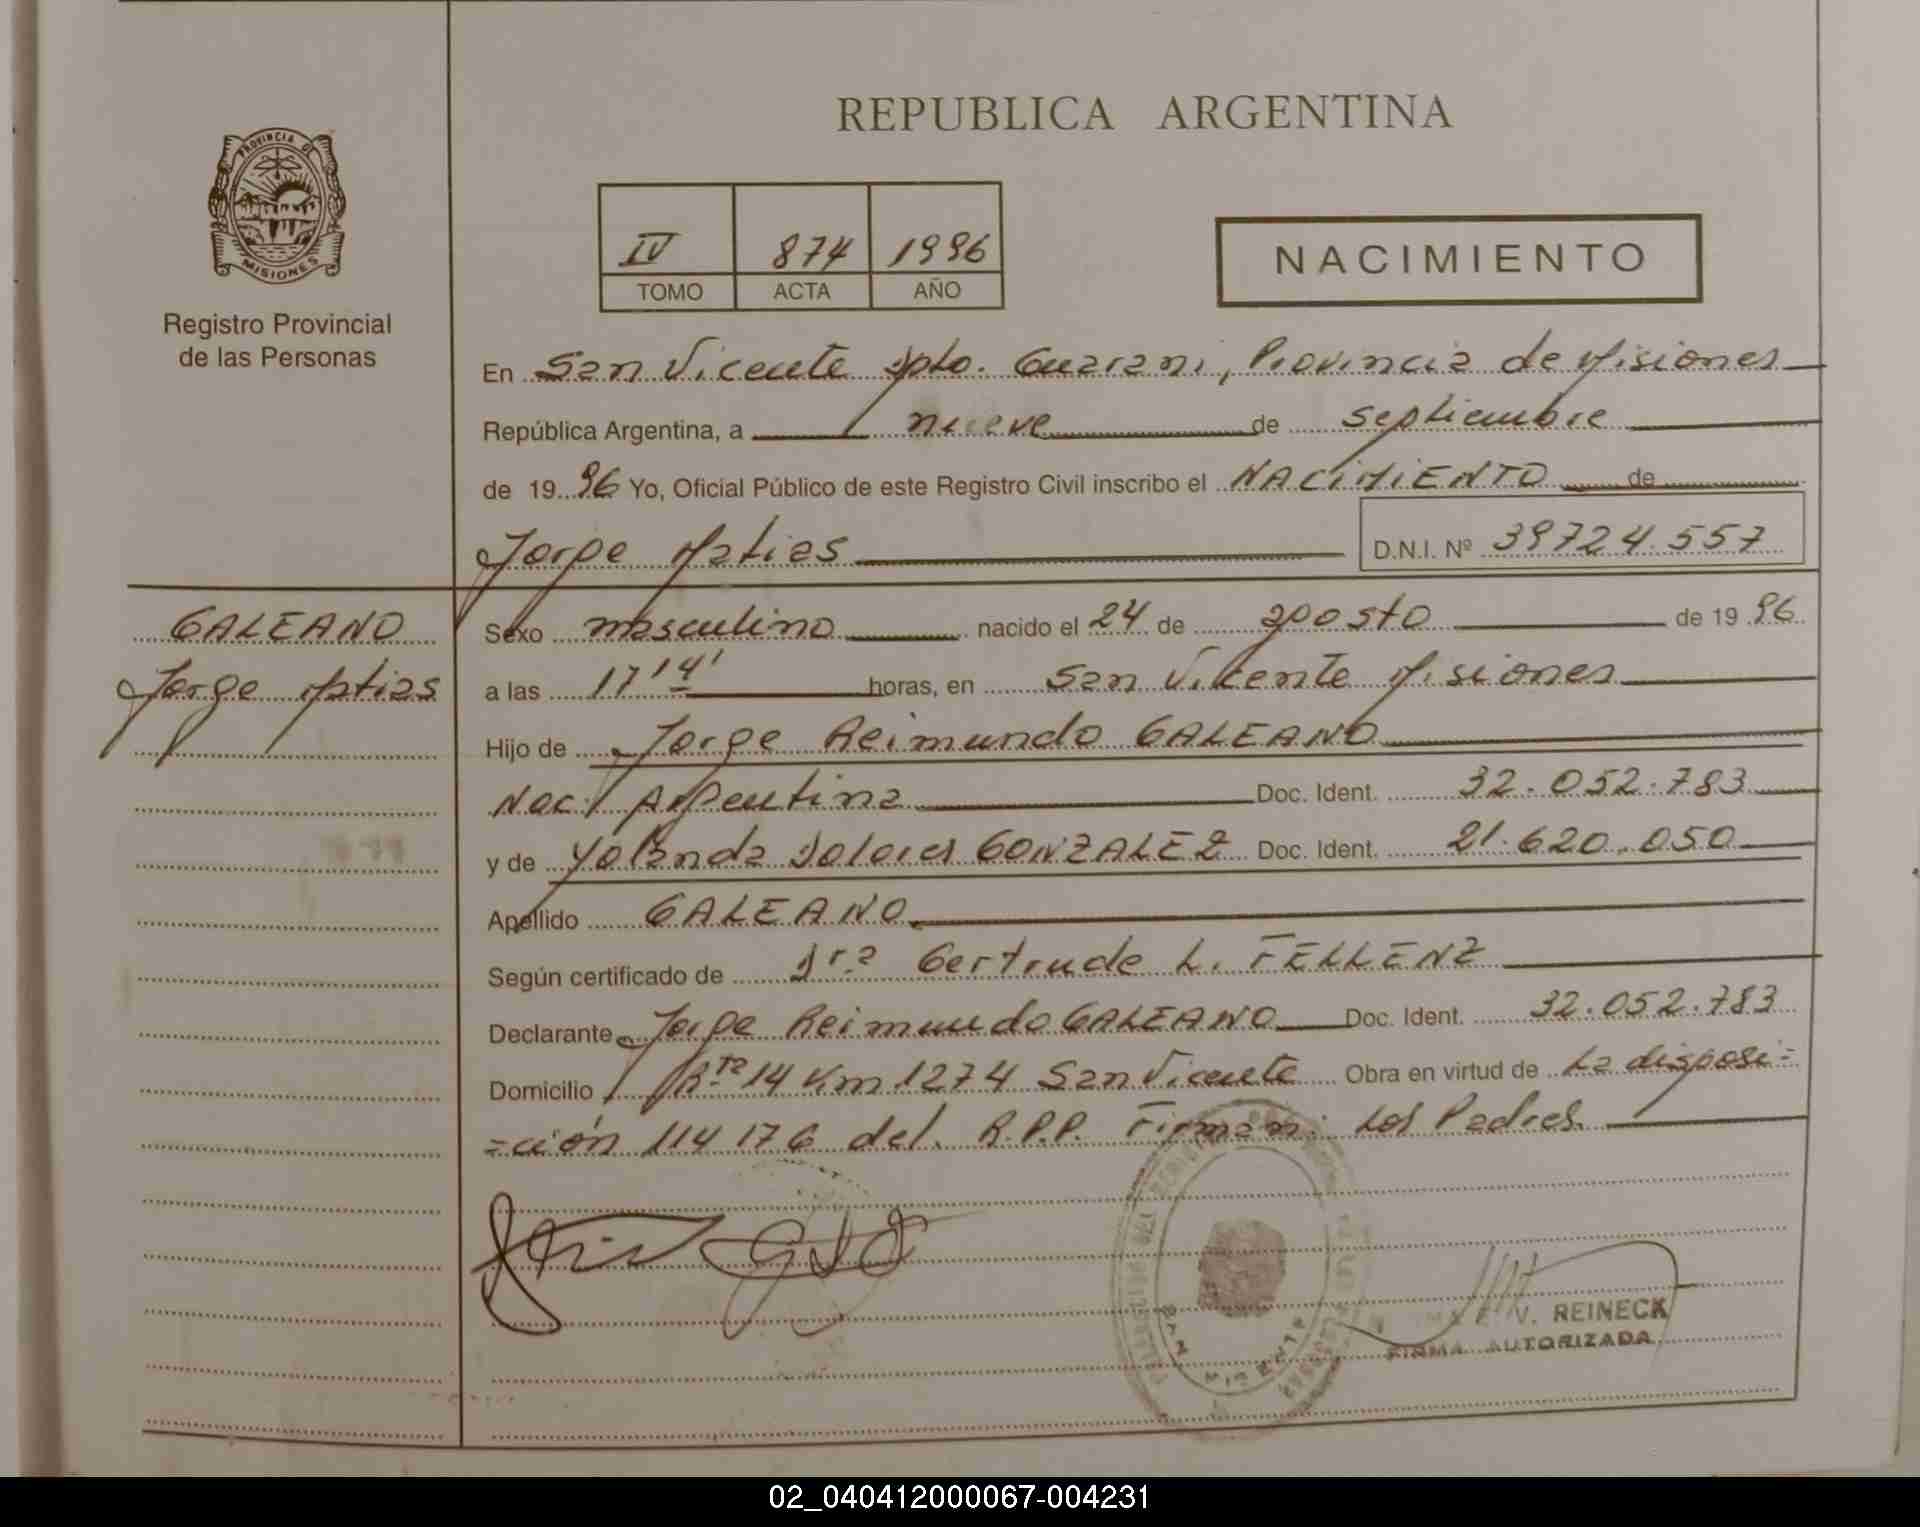 REPUBLICA ARGENTINA
PROVINCIA DE
MISIONES
Registro Provincial
de las Personas
IV 874 1996
TOMO ACTA AÑO
NACIMIENTO
En San Vicente Dpto. Guarani, Provincia de Misiones
República Argentina, a nueve de Septiembre
de 1996 Yo, Oficial Público de este Registro Civil inscribo el NACIMIENTO de
Jorge Matias D.N.I. Nº 39724.557
GALEANO
Jorge Matias
Sexo masculino nacido el 24 de agosto de 1996
a las 17 14' horas, en San Vicente Misiones
Hijo de Jorge Reimundo GALEANO
Nac. Argentina Doc. Ident. 32.052.783
y de Yolanda Dolores GONZALEZ Doc. Ident. 21.620.050
Apellido GALEANO
Según certificado de Dra Gertrude L. FELLENZ
Declarante Jorge Reimundo GALEANO Doc. Ident. 32.052.783
Domicilio Rta 14 Km 1274 San Vicente Obra en virtud de La disposi=
=ción 114176 del R.P.P. Firman: Los Padres.
SAN VICENTE
V. REINECK
FIRMA AUTORIZADA
02_040412000067-004231